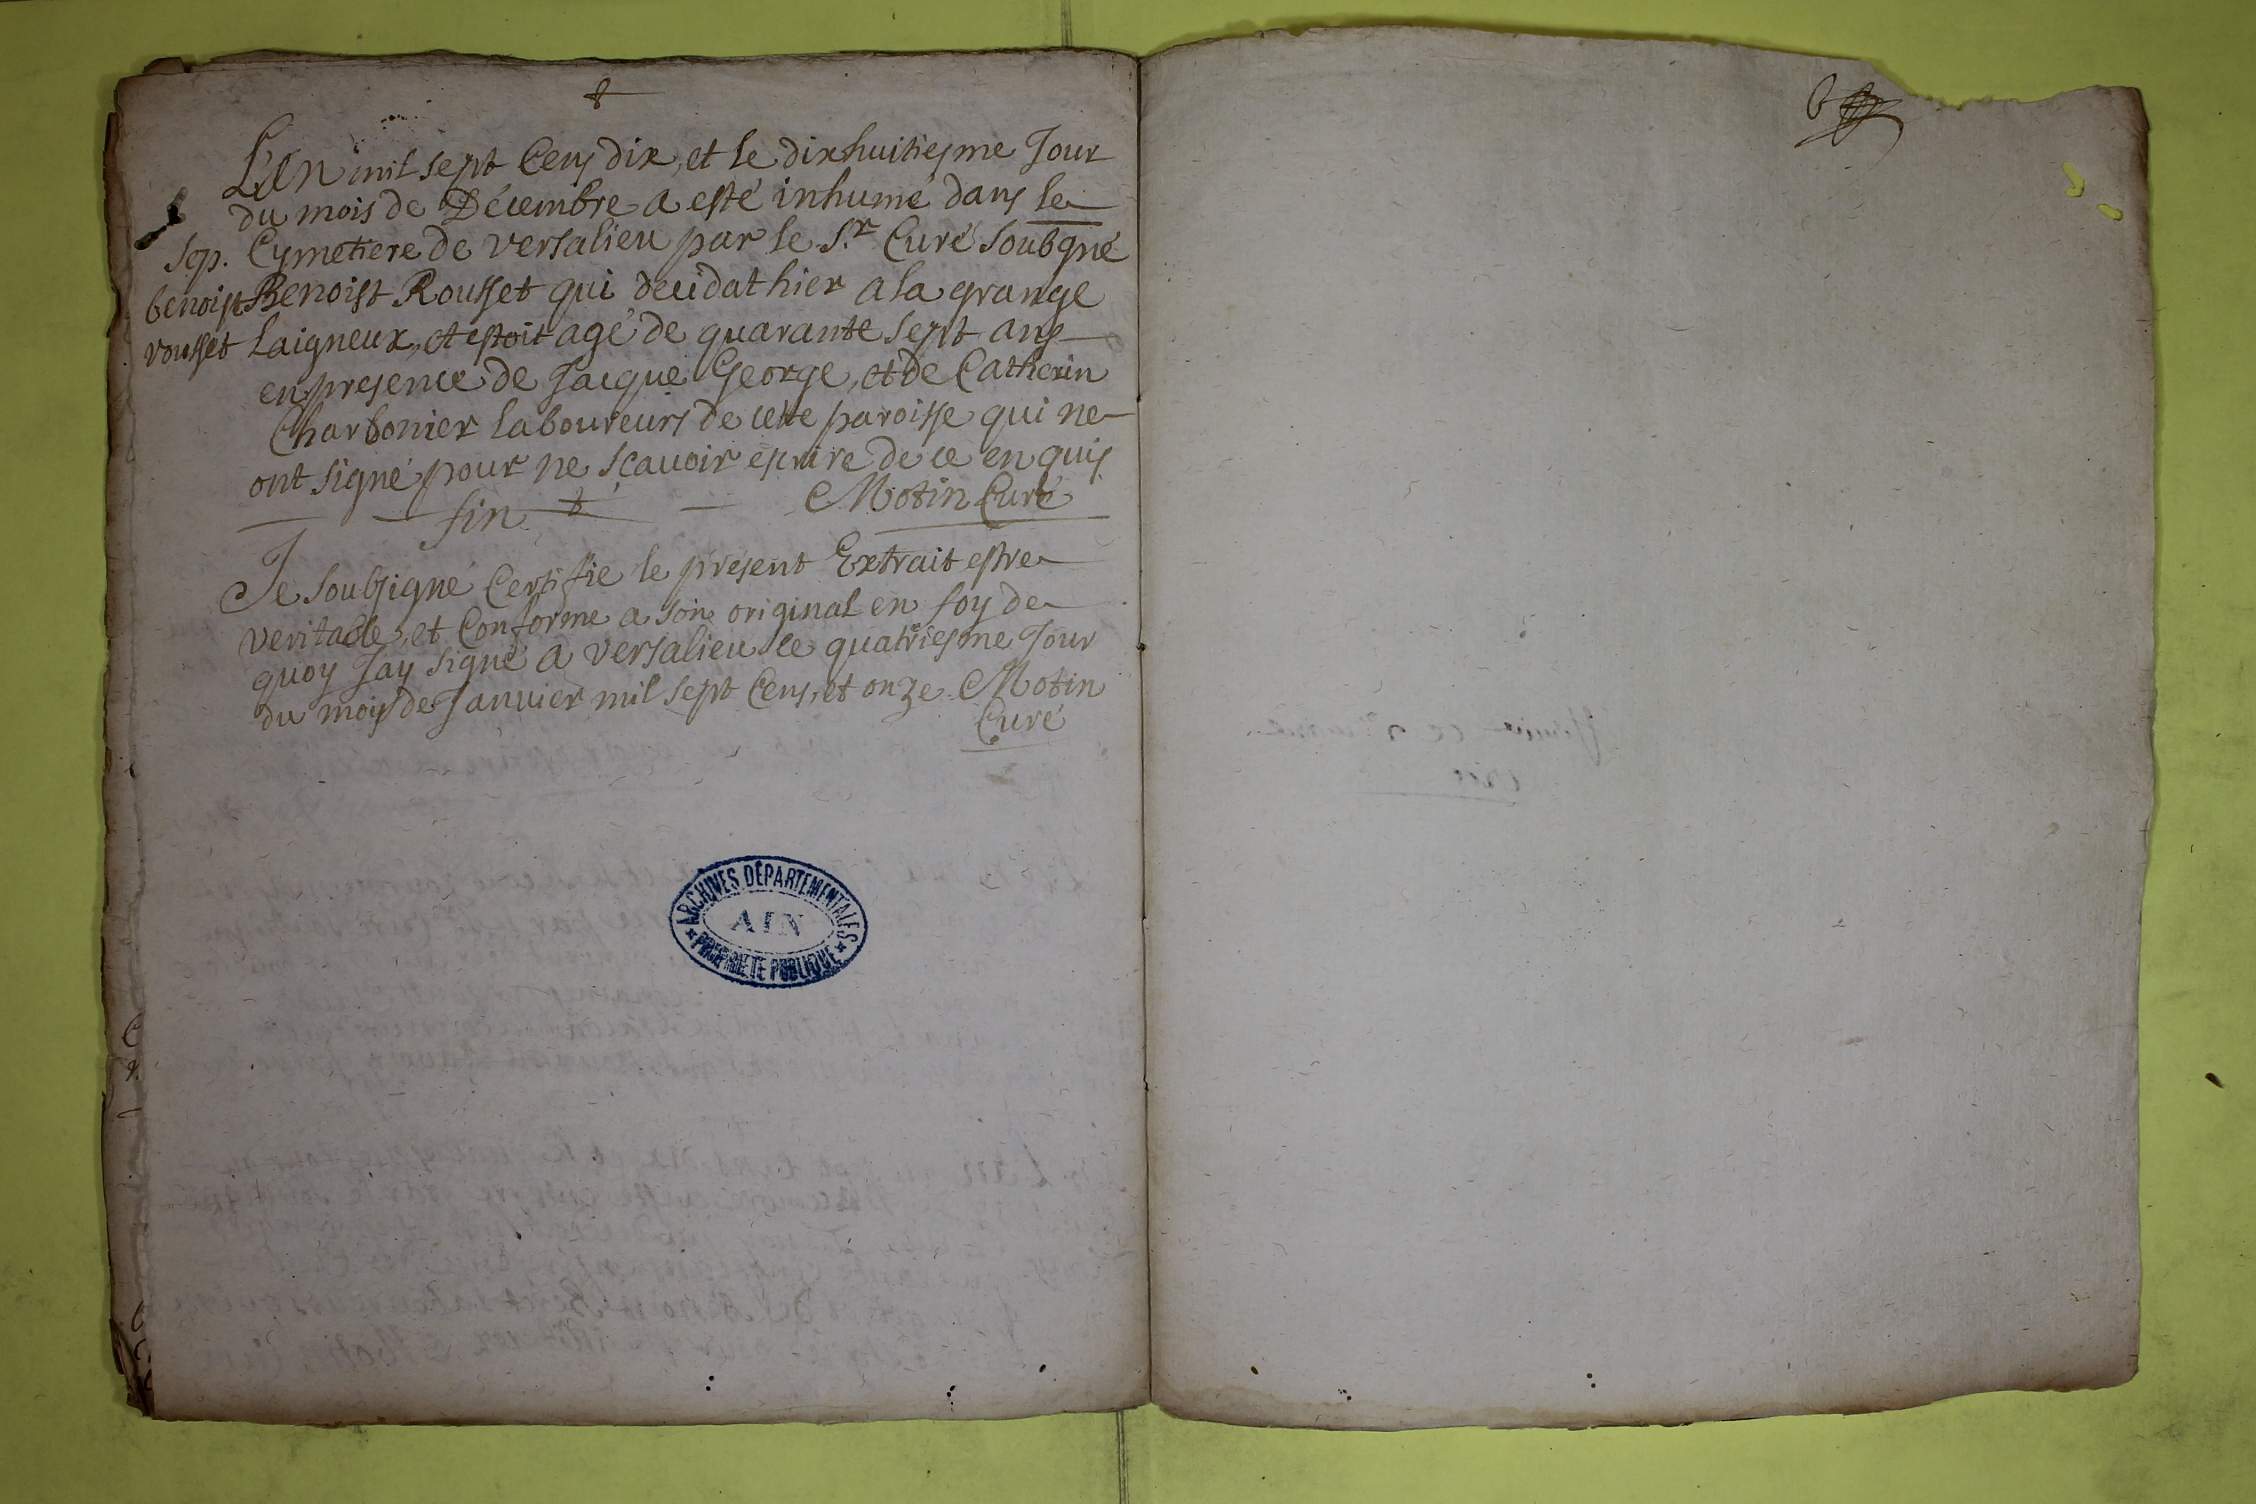 L'An mil sept Cens dix, et le dixhuitiesme Jour
du mois de Décembre a esté inhumé dans le
Cymetiere de versalieu par le S.r Curé Soubgné
Benoist Rousset qui decidat hier a la grange
Laigneux, et estoit agé de quarante sept ans
en presence de Jacque George, et de Catherin
Charbonier laboureurs de cette paroisse qui ne
ont signé pour ne sçavoir escrire de ce enquis
fin Motin Curé
sep.
benoist
rousset
Je Soubsigné Certifie le present Extrait estre
veritable, et Conforme a son original en foy de
quoy Jay signé a versalieu le quatriesme Jour
du moys de Janvier mil sept Cens, et onze Motin
Curé
ARCHIVES DÉPARTEMENTALES
AIN
PROPRIÉTÉ PUBLIQUE